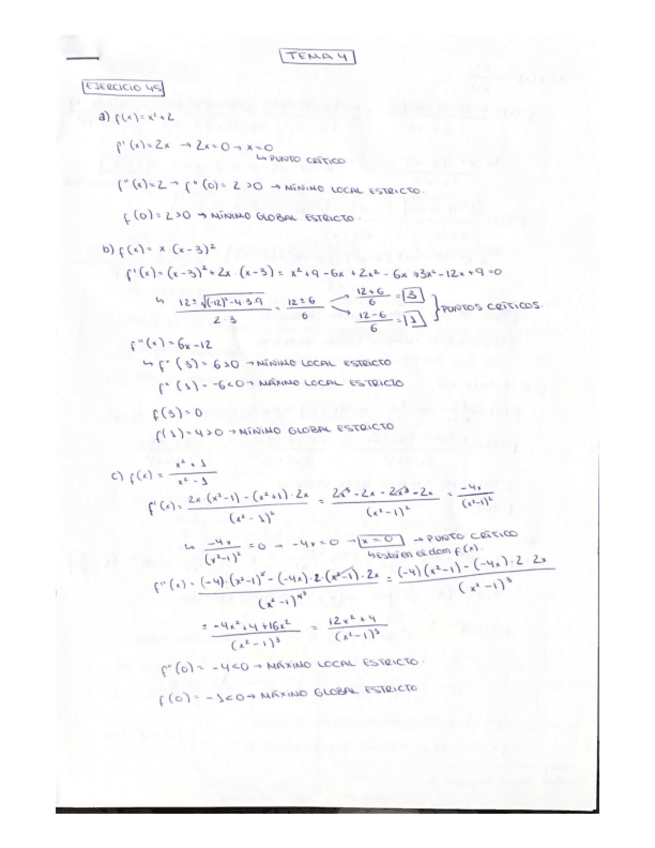 TEMA 4
EJERCICIO 45
a) f(x) = x² + 2
f'(x) = 2x → 2x = 0 → x = 0
↳ PUNTO CRÍTICO
f''(x) = 2 → f''(0) = 2 > 0 → MÍNIMO LOCAL ESTRICTO.
f(0) = 2 > 0 → MÍNIMO GLOBAL ESTRICTO.
b) f(x) = x (x-3)²
f'(x) = (x-3)² + 2x · (x-3) = x² + 9 - 6x + 2x² - 6x → 3x² - 12x + 9 = 0
↳ 12 ± √(-12)² - 4·3·9 / 2·3 = 12 ± 6 / 6 → 12+6 / 6 = 3 → 12-6 / 6 = 1 } PUNTOS CRÍTICOS.
f''(x) = 6x - 12
↳ f''(3) = 6 > 0 → MÍNIMO LOCAL ESTRICTO
f''(1) = -6 < 0 → MÁXIMO LOCAL ESTRICTO
f(3) = 0
f(1) = 4 > 0 → MÍNIMO GLOBAL ESTRICTO
c) f(x) = x² + 1 / x² - 1
f'(x) = 2x · (x²-1) - (x²+1) · 2x / (x² - 1)² = 2x³ - 2x - 2x³ - 2x / (x² - 1)² = -4x / (x²-1)²
↳ -4x / (x²-1)² = 0 → -4x = 0 → x = 0 → PUNTO CRÍTICO
↳ está en el dom f(x).
f''(x) = (-4) · (x²-1)² - (-4x) · 2 · (x²-1) · 2x / (x²-1)⁴³ = (-4)(x²-1) - (-4x) · 2 2x / (x² - 1)³
= -4x² + 4 + 16x² / (x² - 1)³ = 12x² + 4 / (x² - 1)³
f''(0) = -4 < 0 → MÁXIMO LOCAL ESTRICTO.
f(0) = -1 < 0 → MÁXIMO GLOBAL ESTRICTO